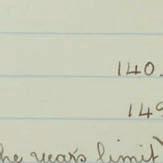 140
149
he year's limit